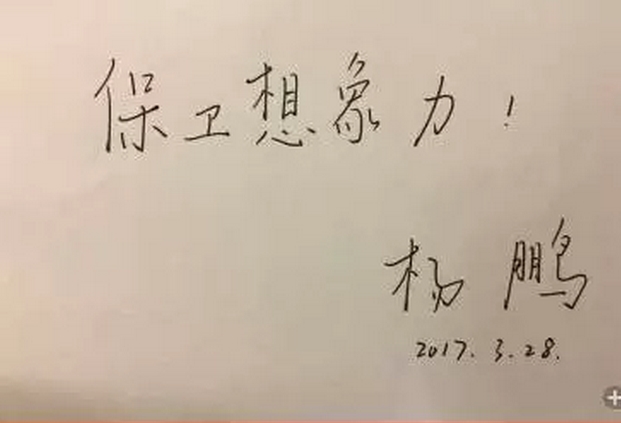 保卫想象力！
杨鹏
2017.3.28.